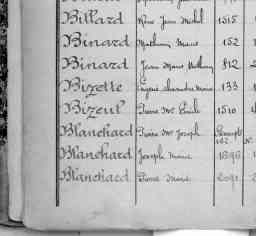 Billard René Jean Michel 1515
Binard Mathurin Marie 152
Binard Jean Marie Mathurin 812
Bizette Eugène Alexandre Marie 133
Bizeul Pierre Mie Emile 1510
Blanchard Pierre Mie Joseph
Blanchard Joseph Marie 1898
Blanchard Pierre Marie 2091